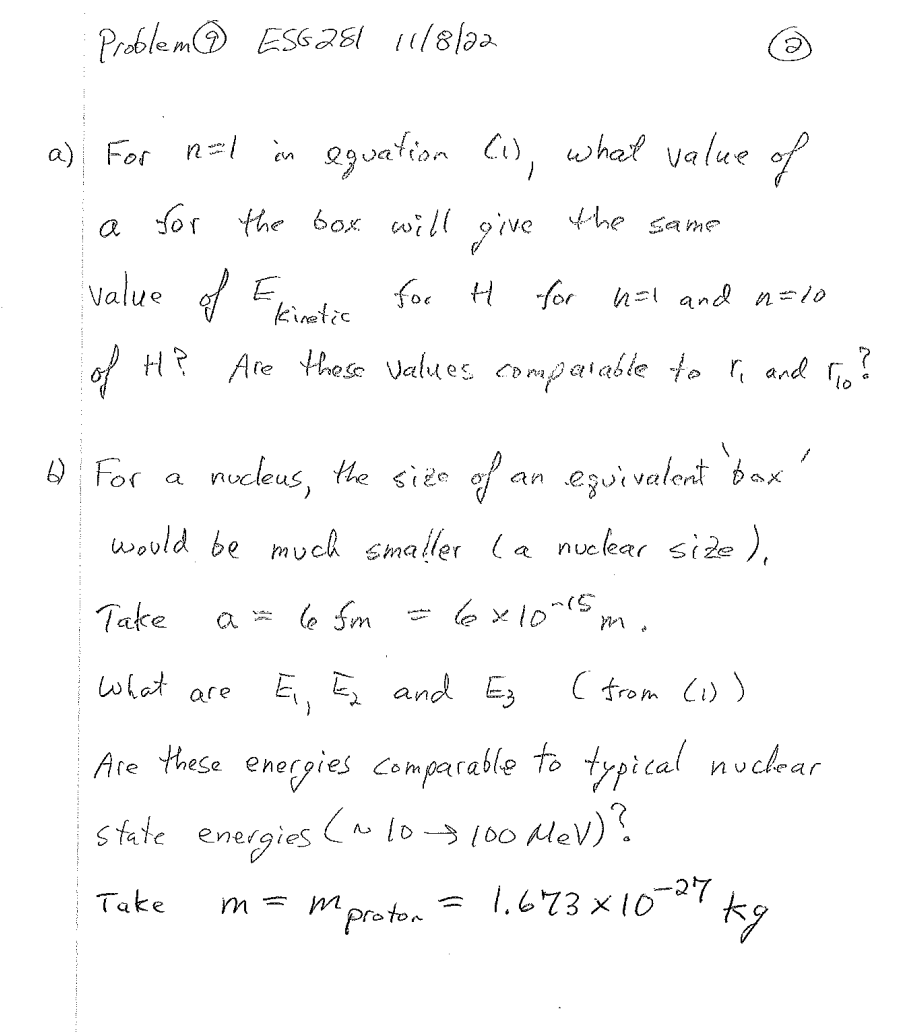 Problem ⑨ ESG281 11/8/22 ②
a) For n=1 in equation (1), what value of
a for the box will give the same
value of E_kinetic for H for n=1 and n=10
of H? Are these values comparable to r₁ and r₁₀?
b) For a nucleus, the size of an equivalent 'box'
would be much smaller (a nuclear size).
Take a = 6 fm = 6 × 10⁻¹⁵ m.
What are E₁, E₂ and E₃ (from (1))
Are these energies comparable to typical nuclear
state energies (~ 10 → 100 MeV)?
Take m = m_proton = 1.673 × 10⁻²⁷ kg